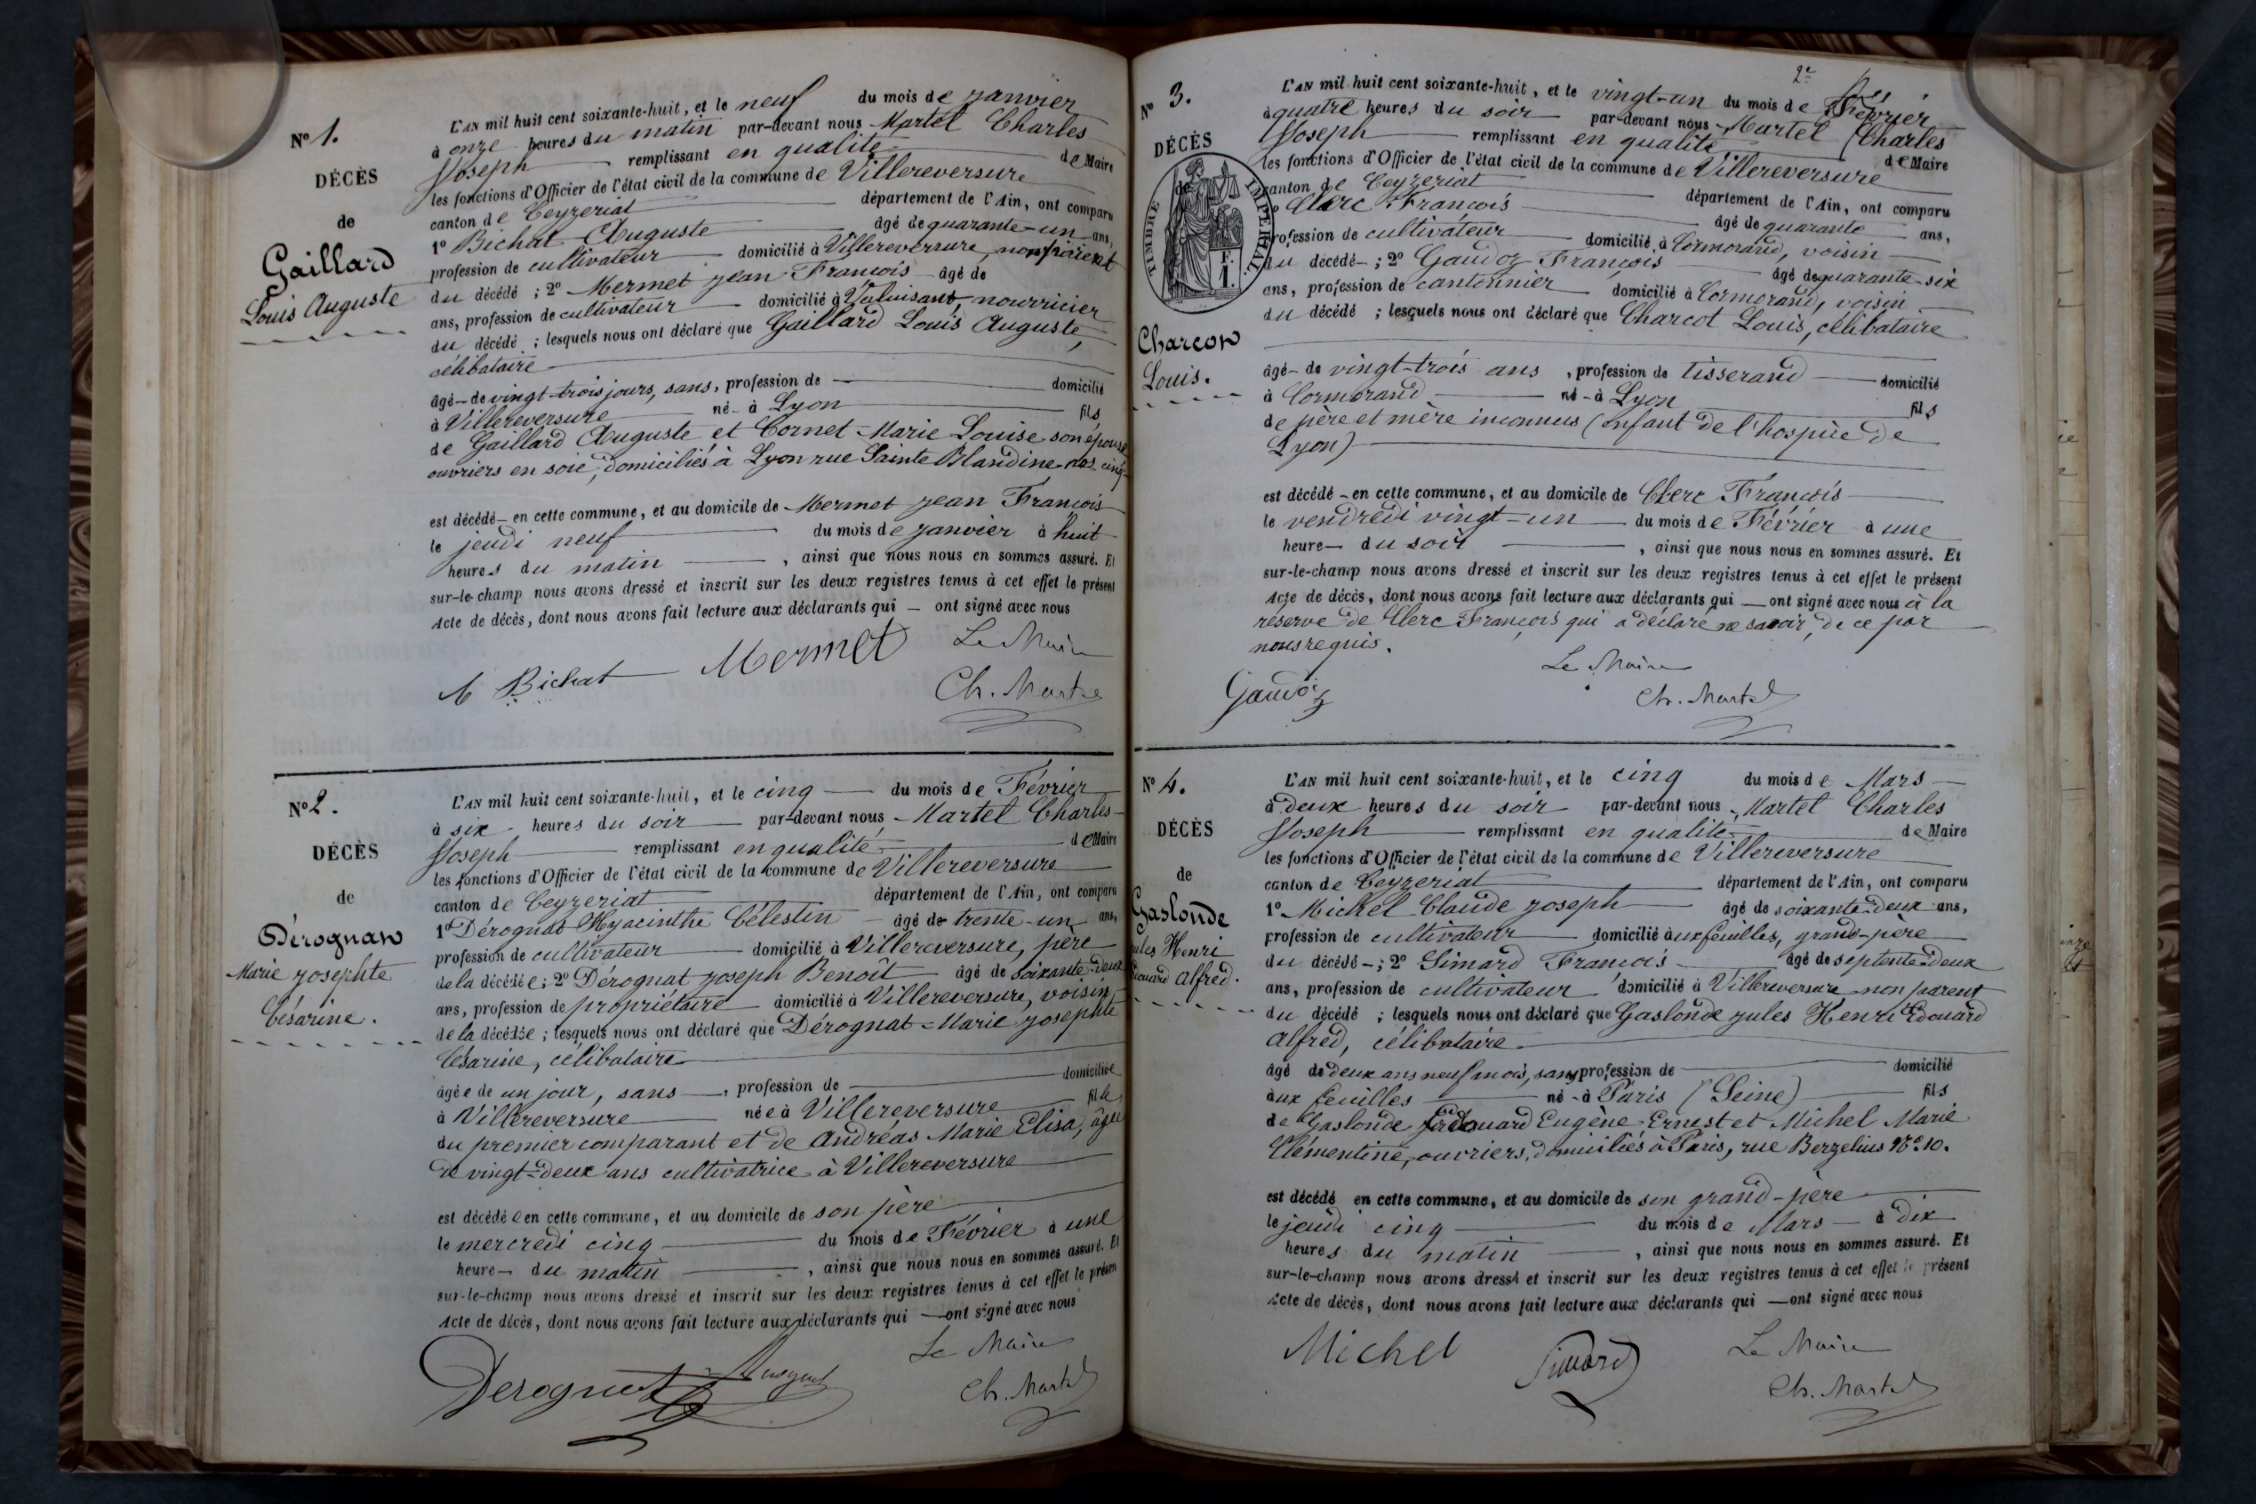 N° 1.
DÉCÈS
de
Gaillard
Louis Auguste
L'AN mil huit cent soixante-huit, et le neuf du mois de janvier
à onze heures du matin par-devant nous Martel Charles
Joseph remplissant en qualité de Maire
les fonctions d'Officier de l'état civil de la commune de Villereversure
canton de Ceyzeriat département de l'Ain, ont comparu
1° Bichat Auguste âgé de quarante-un ans,
profession de cultivateur domicilié à Villereversure, non parent
du décédé ; 2° Mermet jean François âgé de
ans, profession de cultivateur domicilié à nourricier
du décédé ; lesquels nous ont déclaré que Gaillard Louis Auguste,
célibataire
âgé de vingt-trois jours, sans, profession de domicilié
à Villereversure né à Lyon fils
de Gaillard Auguste et Cornet Marie Louise son épouse
ouvriers en soie, domiciliés à Lyon rue Sainte Blandine
est décédé en cette commune, et au domicile de Mermet jean François
le jeudi neuf du mois de janvier à huit
heures du matin , ainsi que nous nous en sommes assuré. Et
sur-le-champ nous avons dressé et inscrit sur les deux registres tenus à cet effet le présent
Acte de décès, dont nous avons fait lecture aux déclarants qui — ont signé avec nous
Bichat Mermet Le Maire
Ch. Martel
N° 2.
DÉCÈS
de
Dérognat
Marie josephte
Césarine.
L'AN mil huit cent soixante-huit, et le cinq du mois de Février
à six heures du soir par-devant nous Martel Charles
Joseph remplissant en qualité de Maire
les fonctions d'Officier de l'état civil de la commune de Villereversure
canton de Ceyzeriat département de l'Ain, ont comparu
1° Dérognat Hyacinthe Célestin âgé de trente-un ans,
profession de cultivateur domicilié à Villereversure, père
de la décédée ; 2° Dérognat joseph Benoît âgé de soixante-deux
ans, profession de propriétaire domicilié à Villereversure, voisin
de la décédée ; lesquels nous ont déclaré que Dérognat Marie josephte
Césarine, célibataire
âgée de un jour, sans , profession de domiciliée
à Villereversure née à Villereversure fille
du premier comparant et de Andréas Marie Elisa, âgée
de vingt-deux ans cultivatrice à Villereversure
est décédée en cette commune, et au domicile de son père
le mercredi cinq du mois de Février à une
heure du matin , ainsi que nous nous en sommes assuré. Et
sur-le-champ nous avons dressé et inscrit sur les deux registres tenus à cet effet le présent
Acte de décès, dont nous avons fait lecture aux déclarants qui — ont signé avec nous
Le Maire
Derognat Ch. Martel
2e
N° 3.
DÉCÈS
de
TIMBRE IMPERIAL
F.
1.
Charcot
Louis.
L'AN mil huit cent soixante-huit, et le vingt-un du mois de Février
à quatre heures du soir par-devant nous Martel Charles
Joseph remplissant en qualité de Maire
les fonctions d'Officier de l'état civil de la commune de Villereversure
canton de Ceyzeriat département de l'Ain, ont comparu
Clerc François âgé de quarante ans,
profession de cultivateur domicilié à Cormorand, voisin
du décédé ; 2° Gaudoz François âgé de quarante-six
ans, profession de cantonnier domicilié à Cormorand, voisin
du décédé ; lesquels nous ont déclaré que Charcot Louis, célibataire
âgé de vingt-trois ans , profession de tisserand domicilié
à Cormorand né à Lyon fils
de père et mère inconnus (Enfant de l'hospice de
Lyon)
est décédé en cette commune, et au domicile de Clerc François
le vendredi vingt-un du mois de Février à une
heure du soir , ainsi que nous nous en sommes assuré. Et
sur-le-champ nous avons dressé et inscrit sur les deux registres tenus à cet effet le présent
Acte de décès, dont nous avons fait lecture aux déclarants qui — ont signé avec nous à la
réserve de Clerc François qui a déclaré ne savoir, de ce par
nous requis.
Le Maire
Gaudoz Ch. Martel
N° 4.
DÉCÈS
de
Gaslonde
Jules Henri
Edouard Alfred.
L'AN mil huit cent soixante-huit, et le cinq du mois de Mars
à deux heures du soir par-devant nous Martel Charles
Joseph remplissant en qualité de Maire
les fonctions d'Officier de l'état civil de la commune de Villereversure
canton de Ceyzeriat département de l'Ain, ont comparu
1° Michel Claude joseph âgé de soixante-deux ans,
profession de cultivateur domicilié aux feuilles, grand-père
du décédé ; 2° Simard François âgé de septente-deux
ans, profession de cultivateur domicilié à Villereversure non parent
du décédé ; lesquels nous ont déclaré que Gaslonde jules Henri Edouard
Alfred, célibataire
âgé de deux ans neuf mois, sans profession de domicilié
aux feuilles né à Paris (Seine) fils
de Gaslonde Edouard Eugène Ernest et Michel Marie
Clémentine, ouvriers, domiciliés à Paris, rue Berzelius N° 10.
est décédé en cette commune, et au domicile de son grand-père
le jeudi cinq du mois de Mars à dix
heures du matin , ainsi que nous nous en sommes assuré. Et
sur-le-champ nous avons dressé et inscrit sur les deux registres tenus à cet effet le présent
Acte de décès, dont nous avons fait lecture aux déclarants qui — ont signé avec nous
Michel Simard Le Maire
Ch. Martel